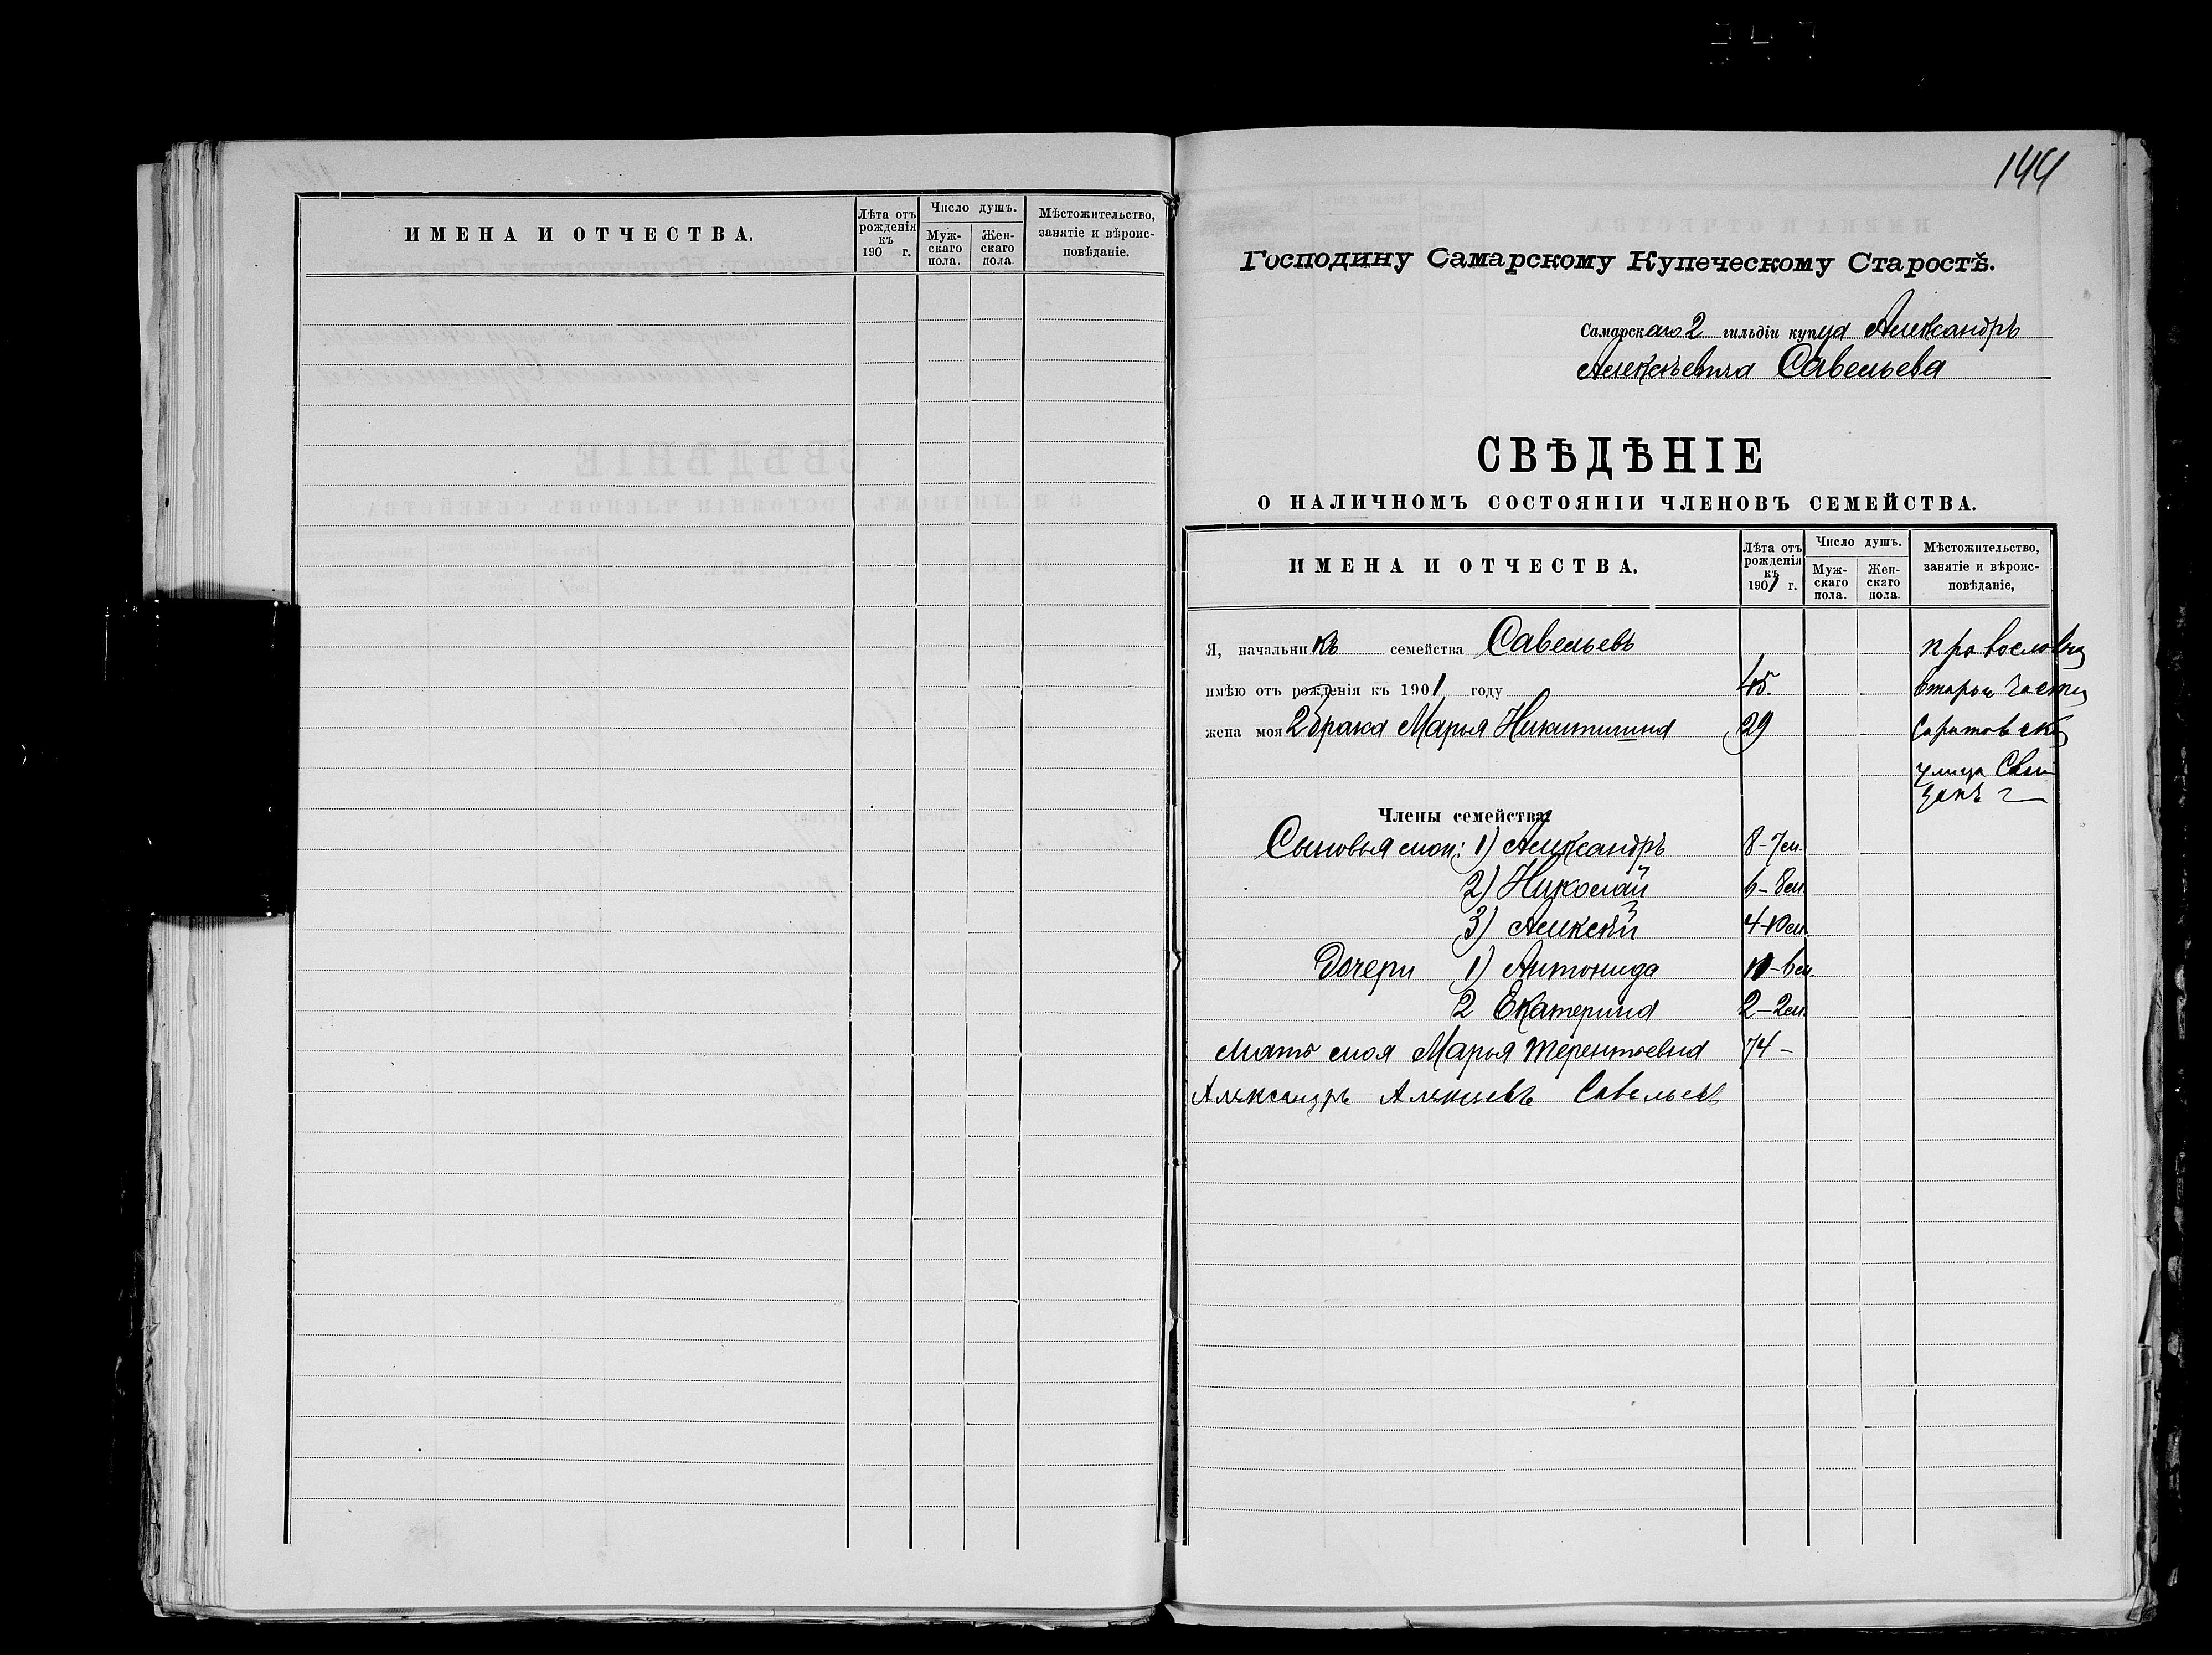 ИМЕНА И ОТЧЕСТВА.
Лѣта отъ рожденія къ 190 г.
Число душъ.
Муж-скаго пола.
Жен-скаго пола.
Мѣстожительство, занятіе и вѣроис-повѣданіе.
144
Господину Самарскому Купеческому Старостѣ.
Самарскаго 2 гильдіи купца Александръ
Алексѣевича Савельева
СВѢДѢНІЕ
О НАЛИЧНОМЪ СОСТОЯНІИ ЧЛЕНОВЪ СЕМЕЙСТВА.
ИМЕНА И ОТЧЕСТВА.
Лѣта отъ рожденія къ 1901 г.
Число душъ.
Муж-скаго пола.
Жен-скаго пола.
Мѣстожительство, занятіе и вѣроис-повѣданіе,
Я, начальникъ семейства Савельевъ
имѣю отъ рожденія къ 1901 году 45. второй части
жена моя 2 брака Марья Никитишна 29
улица
Члены семейства:
Сыновья мои: 1) Александръ 8-7 м.
2) Николай 6-8 м
3) Алексѣй 4-10 м
Дочери 1) Антонида 11-6 м.
2 Екатерина 2-2 м
Мать моя Марья Терентьевна 74-
Александръ Алексѣевъ Савельевъ